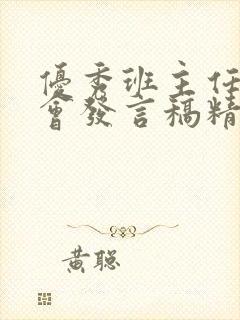 優秀班主任
會發言稿精
黃聰